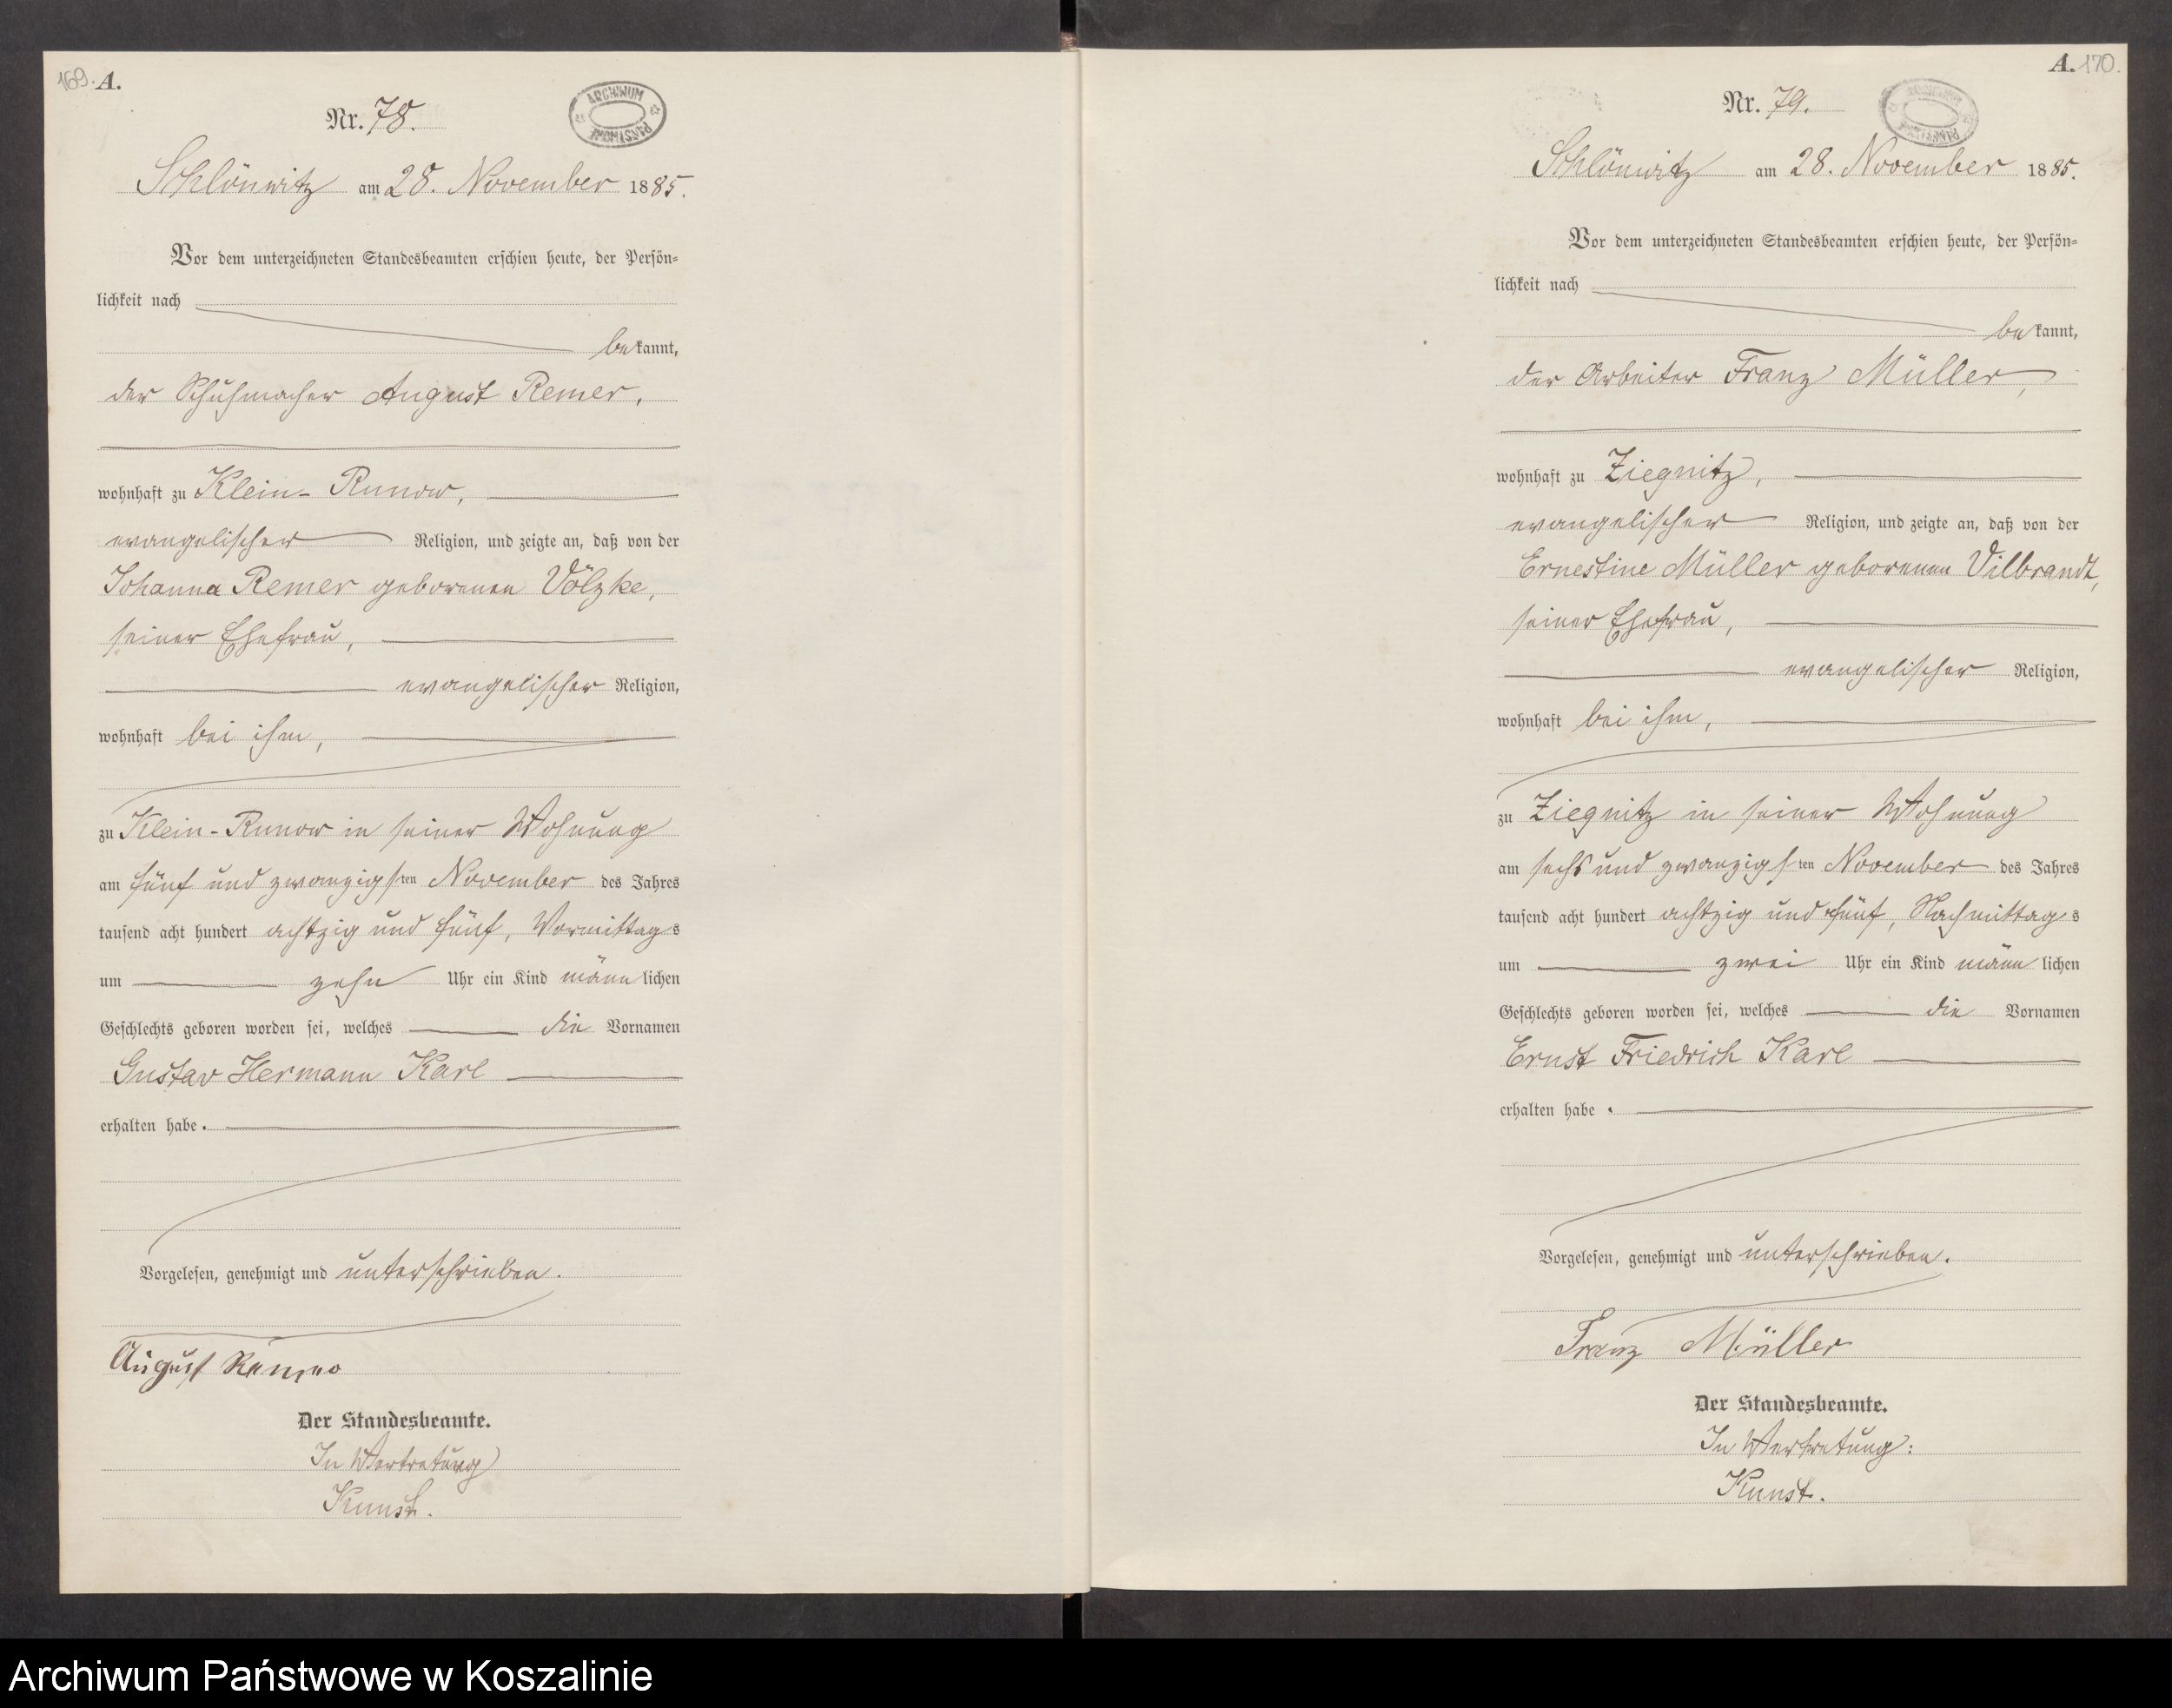 169. A.
Nr. 78.
ARCHIWUM PAŃSTWOWE
Schlönwitz am 28. November 1885.
Vor dem unterzeichneten Standesbeamten erschien heute, der Persön-
lichkeit nach
bekannt,
der Schuhmacher August Remer,
wohnhaft zu Klein-Runow,
evangelischer Religion, und zeigte an, daß von der
Johanna Remer geborenen Völzke,
seiner Ehefrau,
evangelischer Religion,
wohnhaft bei ihm,
zu Klein-Runow in seiner Wohnung
am fünf und zwanzigsten November des Jahres
tausend acht hundert achtzig und fünf, Vormittags
um zehn Uhr ein Kind männlichen
Geschlechts geboren worden sei, welches die Vornamen
Gustav Hermann Karl
erhalten habe.
Vorgelesen, genehmigt und unterschrieben.
August Remer
Der Standesbeamte.
In Vertretung
Kunst.
A. 170.
Nr. 79.
ARCHIWUM PAŃSTWOWE
Schlönwitz am 28. November 1885.
Vor dem unterzeichneten Standesbeamten erschien heute, der Persön-
lichkeit nach
bekannt,
der Arbeiter Franz Müller,
wohnhaft zu Ziegnitz,
evangelischer Religion, und zeigte an, daß von der
Ernestine Müller geborenen Vilbrandt,
seiner Ehefrau,
evangelischer Religion,
wohnhaft bei ihm,
zu Ziegnitz in seiner Wohnung
am sechs und zwanzigsten November des Jahres
tausend acht hundert achtzig und fünf, Nachmittags
um zwei Uhr ein Kind männlichen
Geschlechts geboren worden sei, welches die Vornamen
Ernst Friedrich Karl
erhalten habe.
Vorgelesen, genehmigt und unterschrieben.
Franz Müller
Der Standesbeamte.
In Vertretung:
Kunst.
Archiwum Państwowe w Koszalinie